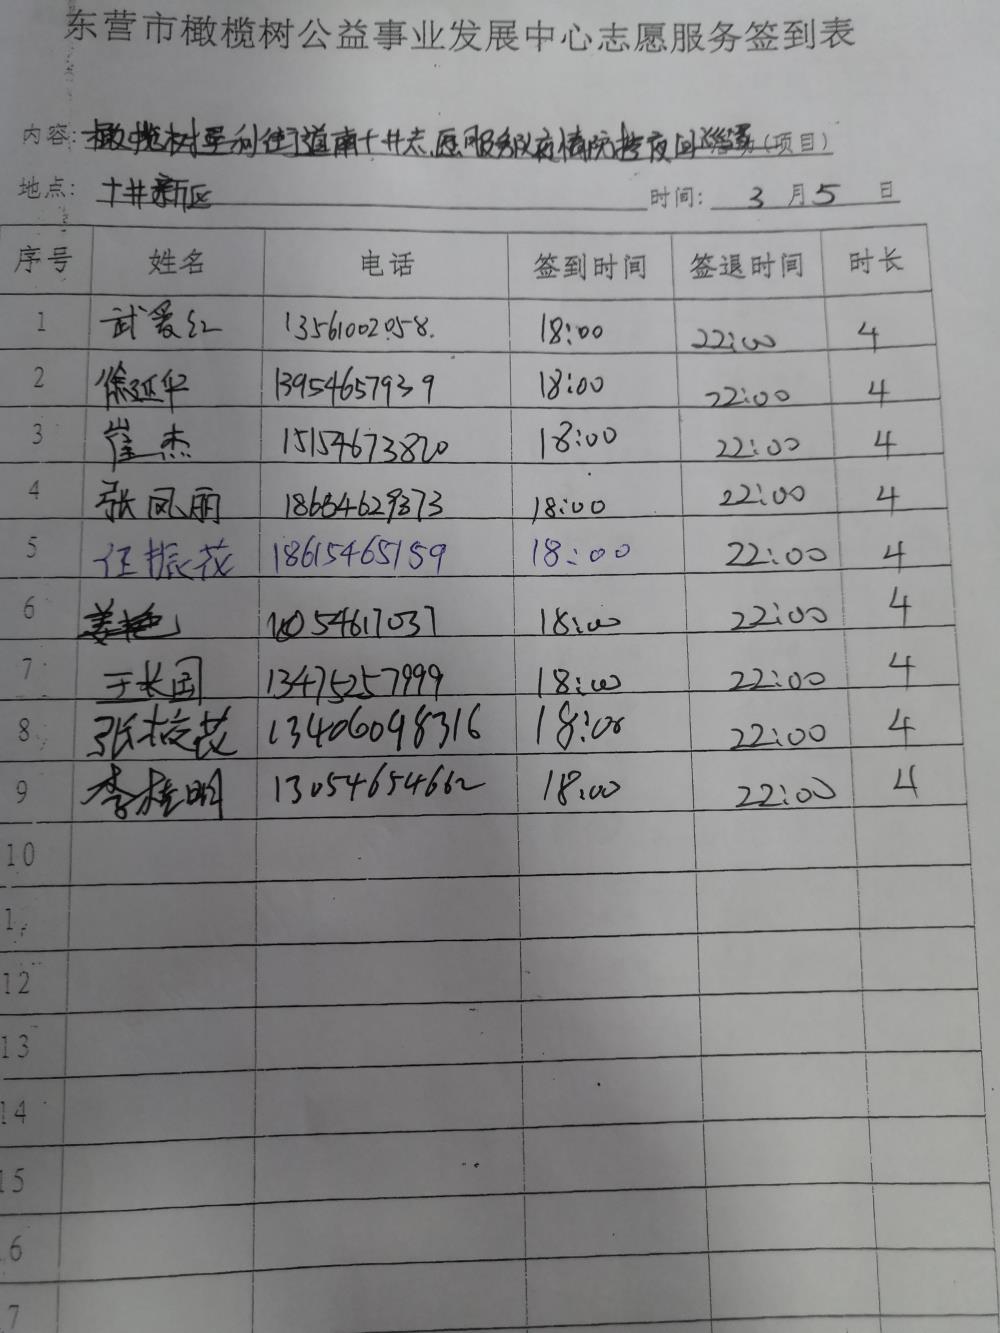 东营市橄榄树公益事业发展中心志愿服务签到表
内容: 橄榄树垦利街道南十井志愿服务队疫情防控夜间巡逻 (项目)
地点: 十井新区 时间: 3 月 5 日
序号 姓名 电话 签到时间 签退时间 时长
1 武爱红 13561002058. 18:00 22:00 4
2 徐延华 13954657939 18:00 22:00 4
3 崔杰 15154673820 18:00 22:00 4
4 张凤丽 18684629373 18:00 22:00 4
5 任振花 18615465159 18:00 22:00 4
6 054617037 18:00 22:00 4
7 王长国 13475257999 18:00 22:00 4
8 张花 13406098316 18:00 22:00 4
9 李桂明 13054654662 18:00 22:00 4
10
1
12
13
14
15
6
7